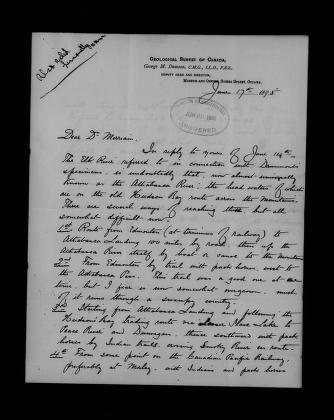 GEOLOGICAL SURVEY OF CANADA,
George M. Dawson, C.M.G., LL.D., F.R.S.,
DEPUTY HEAD AND DIRECTOR,
MUSEUM AND OFFICE, SUSSEX STREET, OTTAWA.
June 17th 1895
ANSWERED
Dear Dr Merriam.
In reply to yours of June 14th.
The Elk River referred to in connection with Drummond's
specimens is undoubtedly that, now almost universally
known as the Athabasca River: the head waters of which
are on the old Hudson Bay route across the mountains.
There are several ways of reaching these but all
somewhat difficult now.
1st Route from Edmonton (at terminus of railway) to
Athabasca Landing 100 miles by road: then up the
Athabasca River itself by boat or canoe to the mountains
2nd From Edmonton by trail with pack horses, west to
the Athabasca Pass. This trail was a good one at one
time, but I fear is now somewhat overgrown, much
of it runs through a swampy country.
3rd Starting from Athabasca Landing and following the
Hudson's Bay trading route via Lesser Slave Lake to
Peace River and Dunvegan, thence southward with pack
horses by Indian trails, crossing Smoky River en route.
4th From some point on the Canadian Pacific Railway,
preferably at Morley, with Indians and pack horses